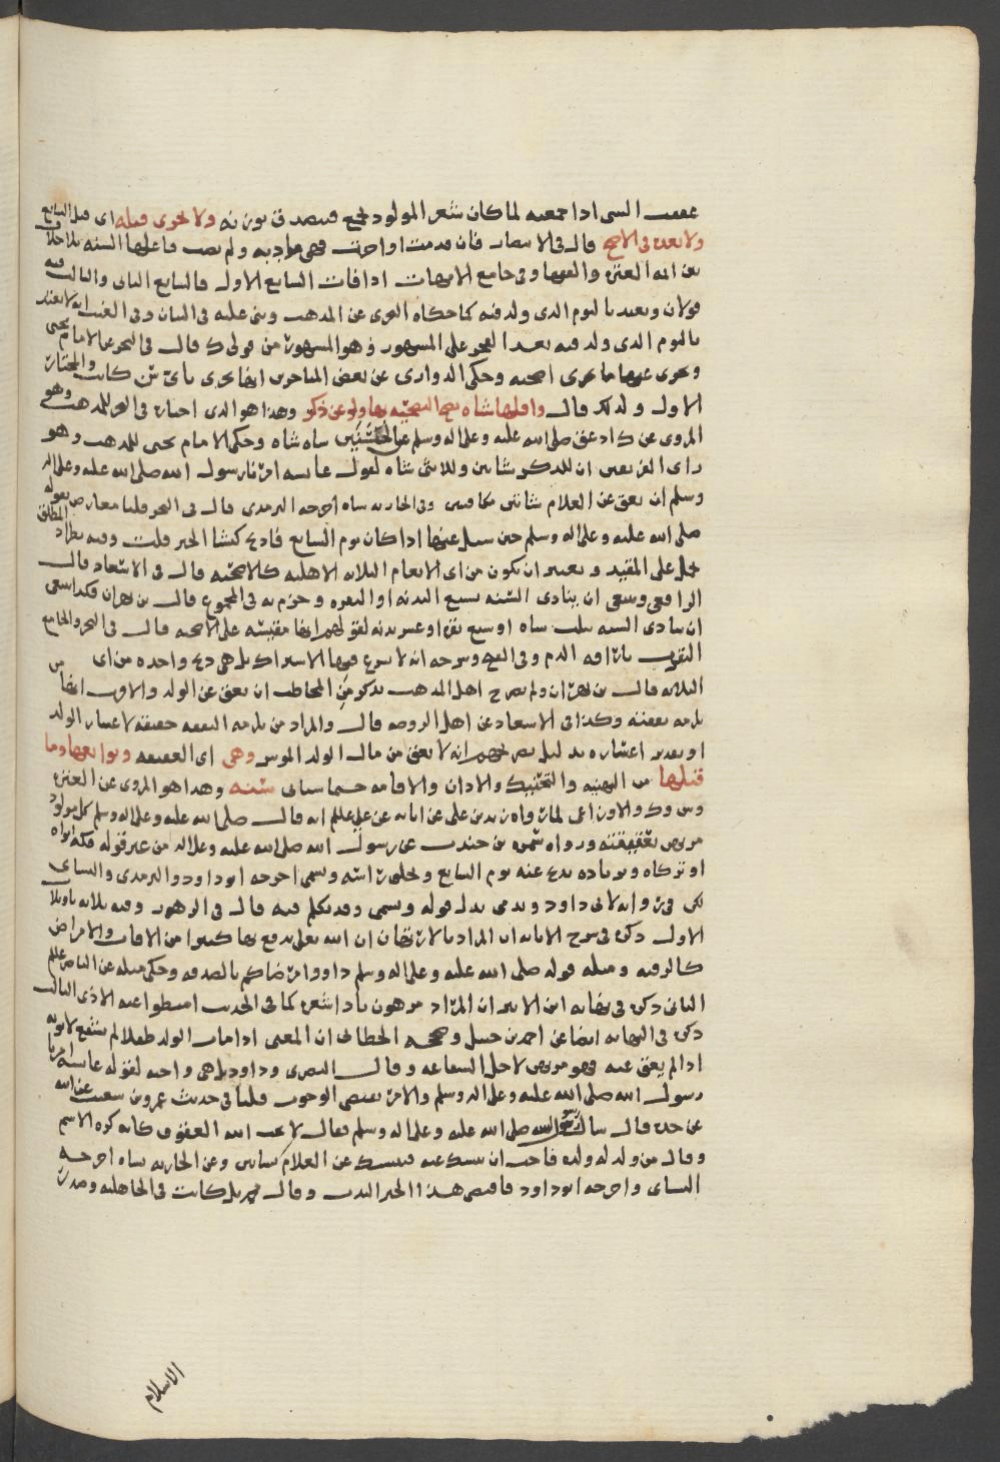 عققت الشي اذا جمعته لما كان شعر المولود يجمع فيتصدق بوزنه ولا يجزى قبله اى قبل السابع
ولا بعده فى الاصح قال فى الانتصار فان قدمت او اخرت فهى مادبه ولم يصب فاعلها السنه بلا خلاف
بين ائمه العتره والفقها وفى جامع الامهات اذا فات السابع الاول فالسابع الثانى والثالث فيه
قولان ويعتد باليوم الذى ولد فيه كما حكاه النووى عن المذهب ونص عليه فى البيان وفى انه لا يعتد
باليوم الذى ولد فيه بعد الفجر على المشهور وهو المشهور من قولى ك قال فى البحر عن الامام يحيى
ويجزى عنها ما يجزى اضحيه وحكى الدوارى عن بعض المتاخرين انها تجزى باى سن كانت والمختار
الاول ولذلك قال واقلها شاه عن ذكر وهذا هو الذى اختاره فى للمذهب وهو
المروى عن ك اذ عق صلى الله عليه وعلى اله وسلم عن الحسنين شاه شاه وحكى الامام يحيى للمذهب وهو
راى الفريقين ان للذكر شاتين وللانثى شاه لقول عايشه امرنا رسول الله صلى الله عليه وعلى اله
وسلم ان نعق عن الغلام شاتين مكافيتين وفى الجاريه شاه اخرجه الترمذى قال فى البحر قلنا معارض بقوله
صلى الله عليه وعلى اله وسلم حين سيل عنها اذا كان يوم السابع فاذبح كبشا الخبر قلت وفيه نظر اذ المطلق
يحمل على المقيد ويعتبر ان تكون من اى الانعام الثلاثه الاهليه كالاضحيه قال فى الاسعاد قال
الرافعى وينبغى ان يتادى السنه بسبع البدنه او البقره وجزم به فى المجموع قال بن بهران فكذا ينبغى
ان يتادى السنه بثلث شاه او سبع بقره او عشر بدنه لقولهم انها مقيسه على الاضحيه قال فى البحر والجامع
التقرب باراقه الدم وفى الفتح وشرحه انه لا يسوغ فيها الاشتراك بل هى ذبح واحده من اى
الثلاثه قال بن بهران ولم يصرح اهل المذهب بذكر من المخاطب ان يعق عن الولد والاقرب انها من
يلزمه نفقته وكذا فى الاسعاد عن اهل الروضه قال والمراد من يلزمه النفقه حقيقه لاعسار الولد
او بعد اعتباره بدليل تصريحهم انه لا يعق من مال الولد الموسر وهى اى العقيقه وتوابعها وما
قبلها من التهنيه والتحنيك والاذان والاقامه حسبما سياتى سنه وهذا هو المروى عن العتره
وش وك والاوزاعى لما رواه زيد بن على عن ابايه عن علي عليلم انه قال صلى الله عليه وعلى اله وسلم كل مولود
مرتهن بعقيقته ورواه سمره بن جندب عن رسول الله صلى الله عليه وعلى اله من غير قوله فكه ابواه
او تركاه وبزياده يذبح عنه يوم السابع ويحلق راسه ويسمى اخرجه ابو داود والترمذى والنساى
لكن فى روايه لابى داود ويدمى بدل قوله ويسمى وقد تكلم فيه قال فى الزهور وفيه ثلاثه تاويلات
الاول ذكره فى شرح الابانه ان المراد بالارتهان ان الله تعلى يدفع بها كثيرا من الافات والامراض
كالرقيه ومثله قوله صلى الله عليه وعلى اله وسلم داووا مرضاكم بالصدقه وحكى مثله عن الناصر عليلم
الثانى ذكره فى نهايه ابن الاثير ان المراد مرهون باذا شعره كما فى الحديث اميطوا عنه الاذى الثالث
ذكره فى النهايه ايضا عن احمد بن حنبل وصححه الخطابى ان المعنى اذا مات الولد طفلا لم يشفع لابويه
اذا لم يعق عنه فهو مرتهن لاجل الشفاعه وقال البصرى وداود بل هى واجبه لقول عايشه امرنا
رسول الله صلى الله عليه وعلى اله وسلم والامر يقتضى الوجوب قلنا فى حديث عمرو بن شعيب عن ابيه
عن جده قال سالت رسول الله صلى الله عليه وعلى اله وسلم فقال لا يحب الله العقوق كانه كره الاسم
وقال من ولد له ولد فاحب ان ينسك عنه فينسك عن الغلام شاتين وعن الجاريه شاه اخرجه
النساى واخرجه ابو داود فاقتضى هذا الخبر الندب وقال بل كانت فى الجاهليه وصدر
الاسلام